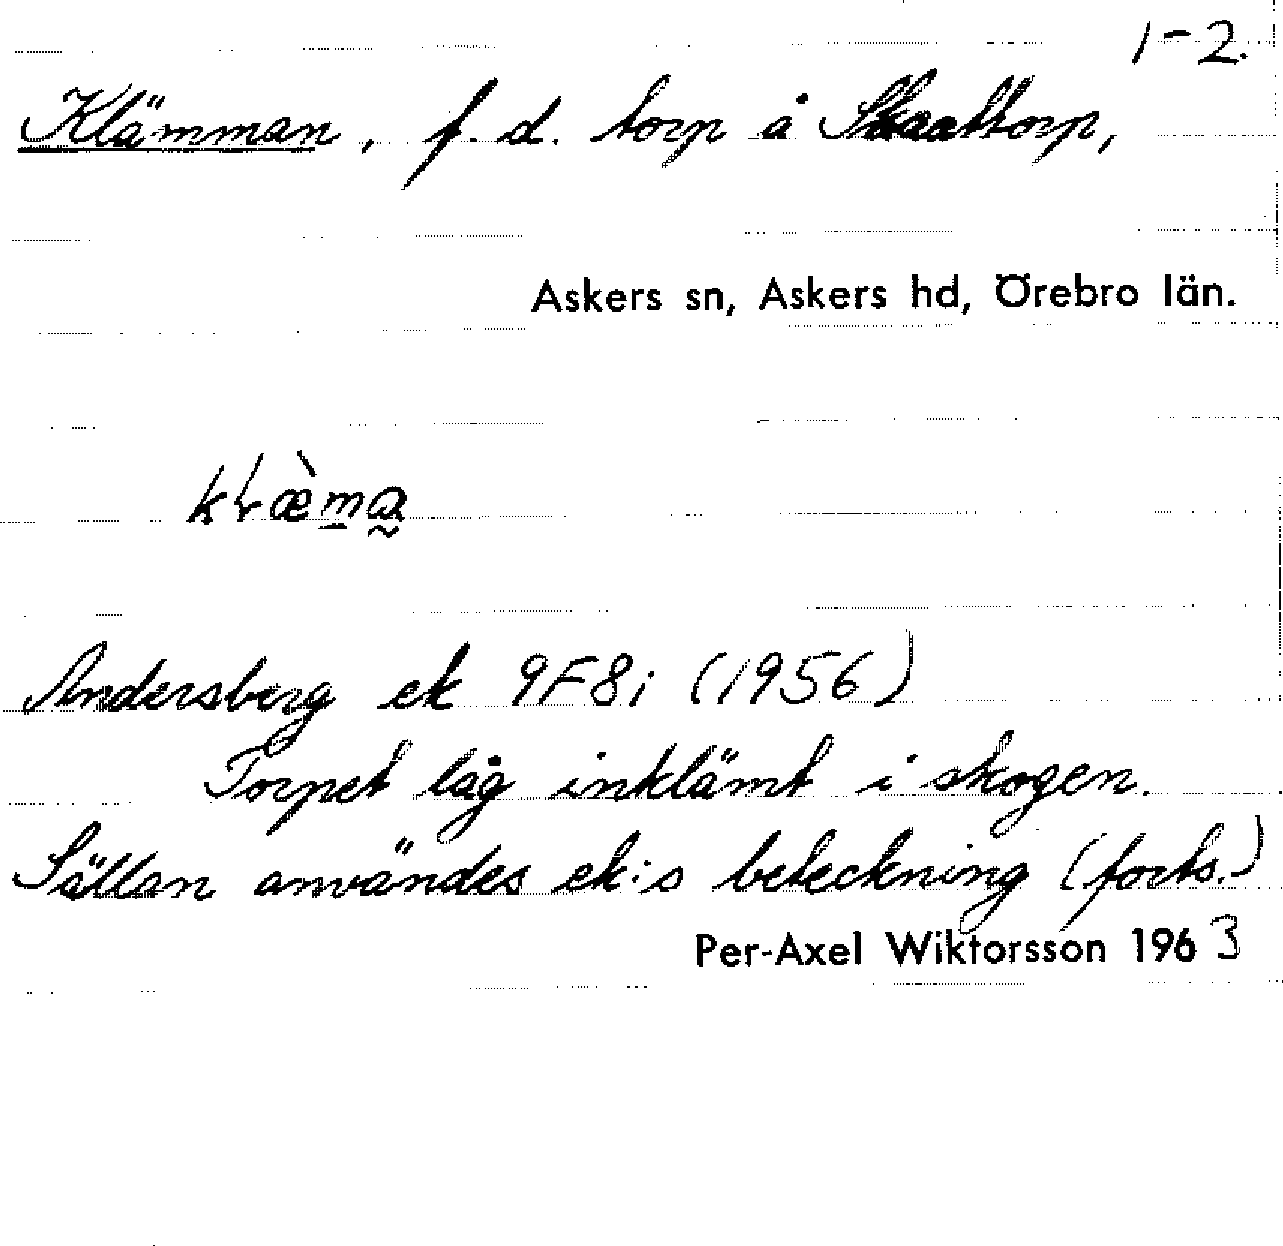 1-2.
Klämman, f. d. torp å Skaattorp,
Askers sn, Askers hd, Örebro län.
Andersberg ek 9F8i (1956)
Torpet låg inklämt i skogen.
Sällan användes ek:s beteckning (forts.)
Per-Axel Wiktorsson 1963